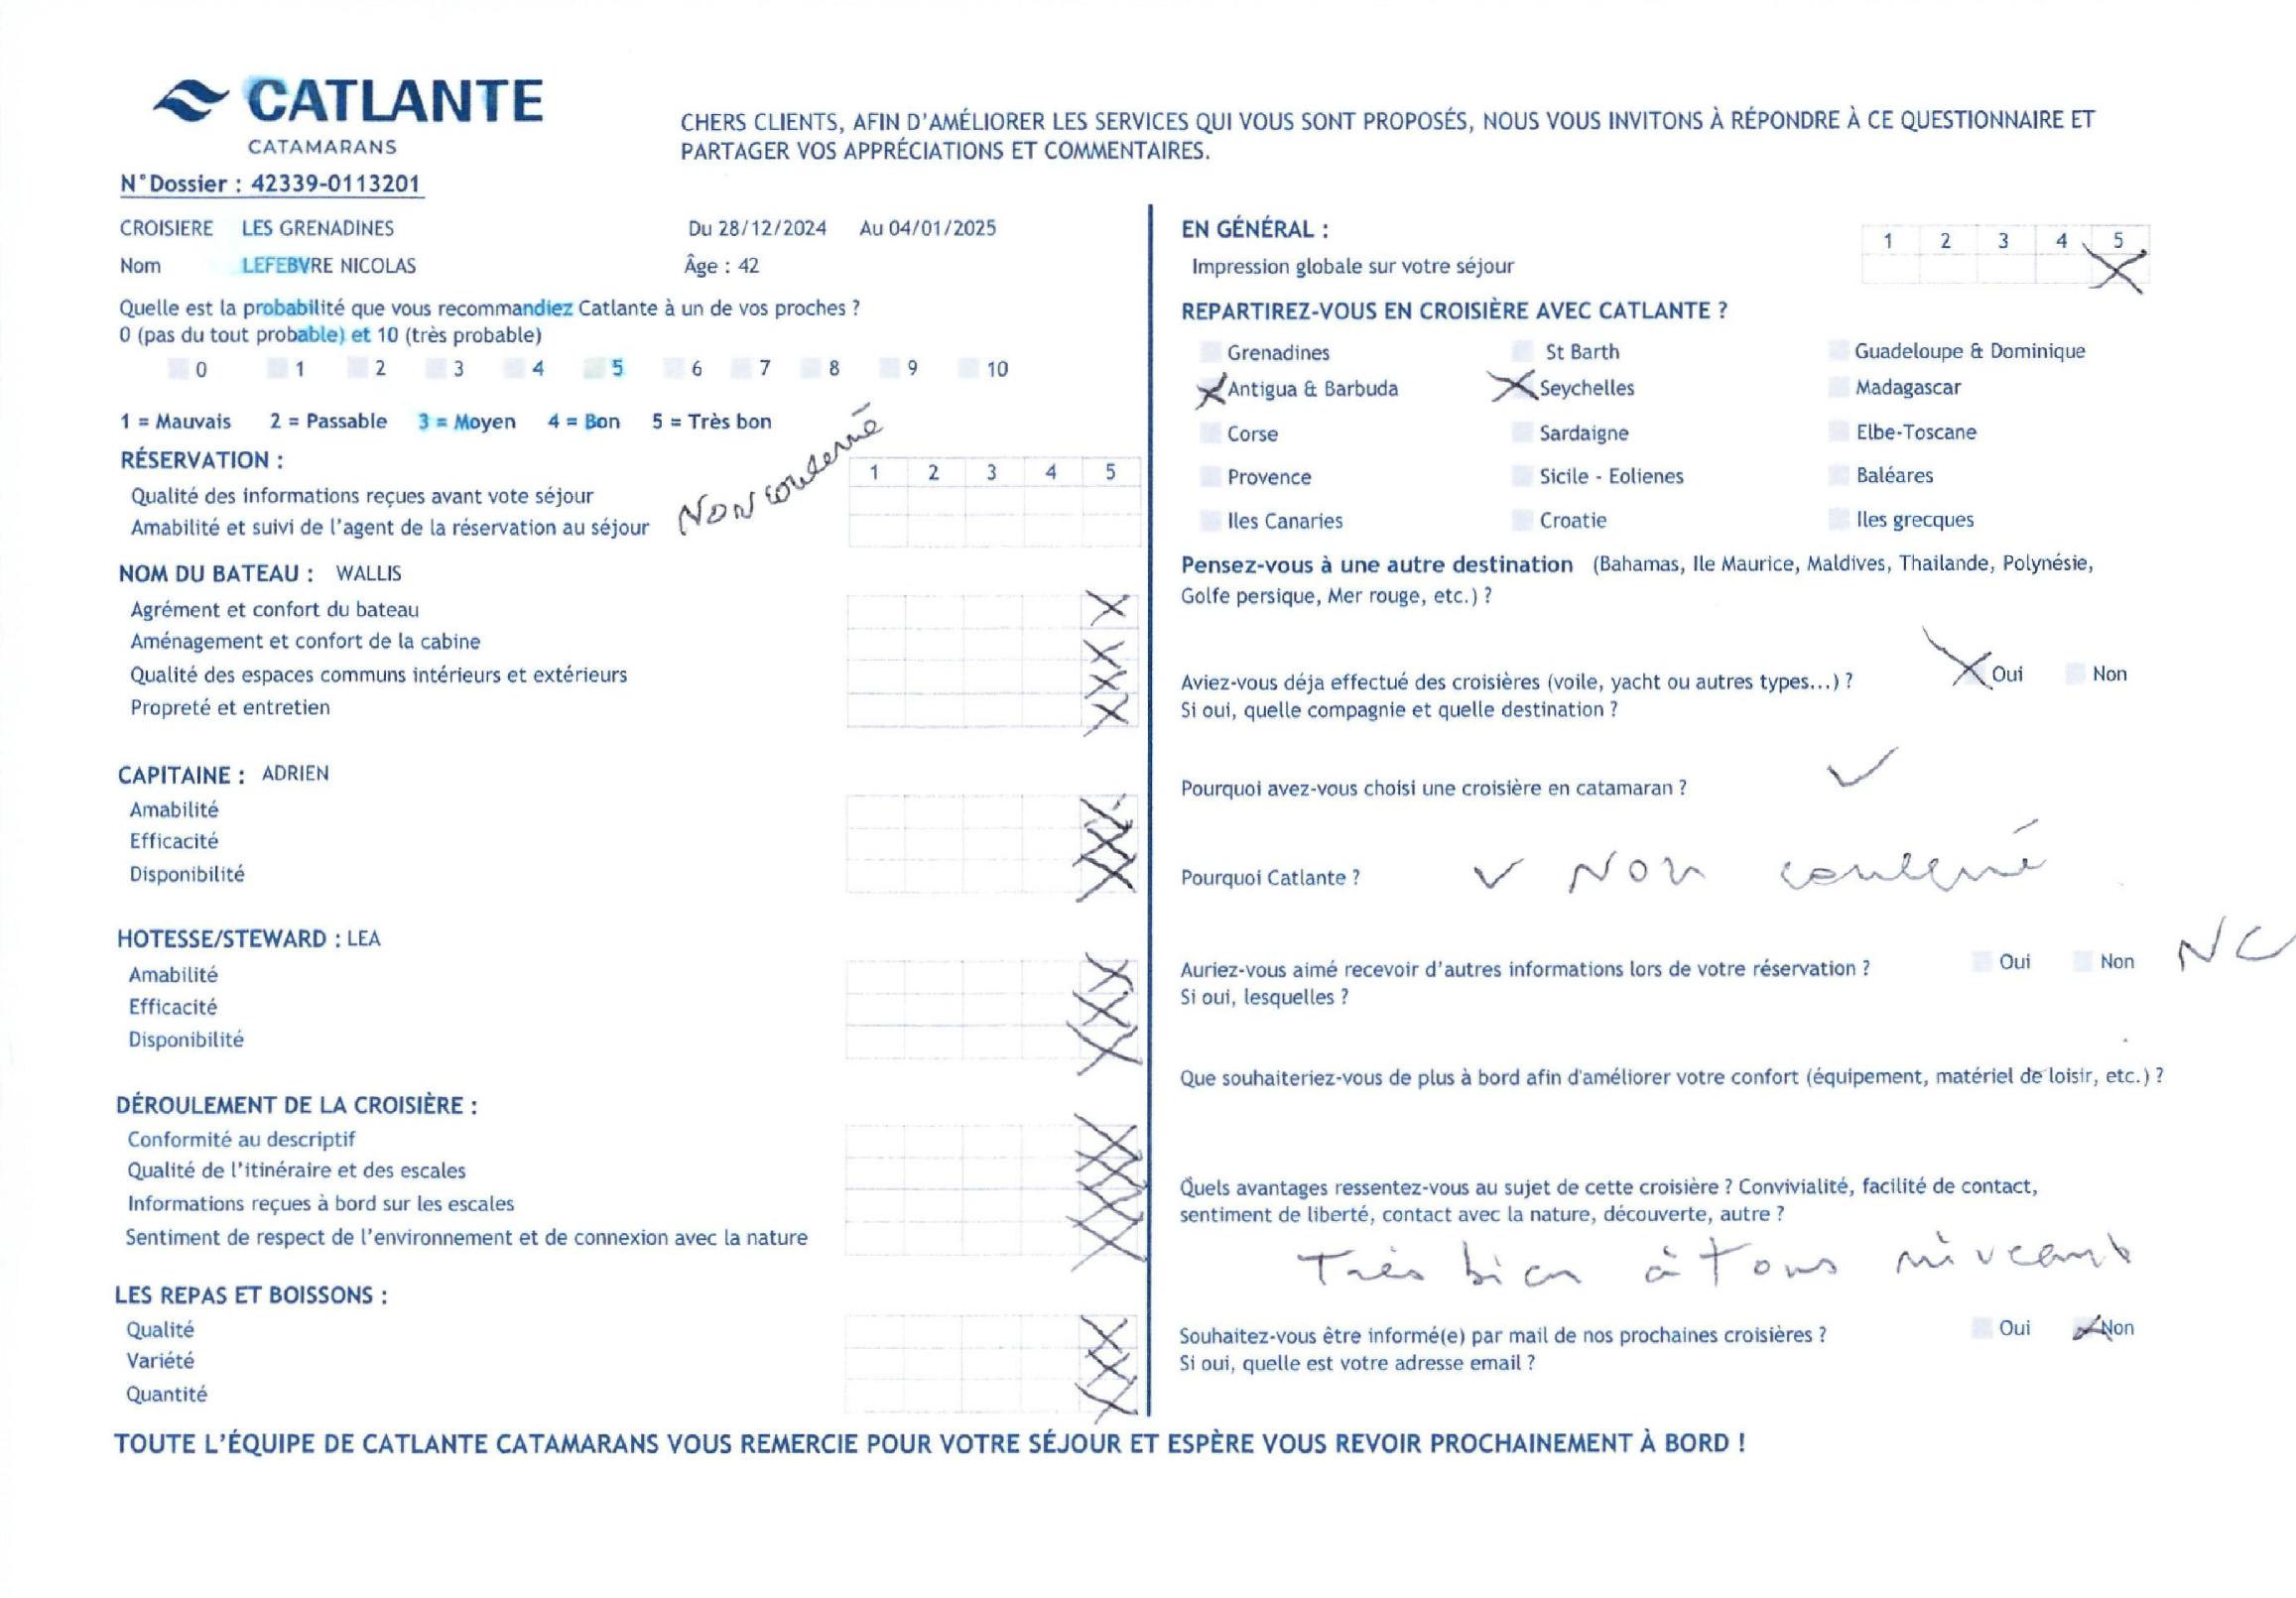 CATLANTE
CATAMARANS
CHERS CLIENTS, AFIN D'AMÉLIORER LES SERVICES QUI VOUS SONT PROPOSÉS, NOUS VOUS INVITONS À RÉPONDRE À CE QUESTIONNAIRE ET
PARTAGER VOS APPRÉCIATIONS ET COMMENTAIRES.
N°Dossier : 42339-0113201
CROISIERE LES GRENADINES Du 28/12/2024 Au 04/01/2025
Nom LEFEBVRE NICOLAS Âge : 42
Quelle est la probabilité que vous recommandiez Catlante à un de vos proches ?
0 (pas du tout probable) et 10 (très probable)
0 1 2 3 4 5 6 7 8 9 10
1 = Mauvais 2 = Passable 3 = Moyen 4 = Bon 5 = Très bon
RÉSERVATION :
1 2 3 4 5
Qualité des informations reçues avant vote séjour
Amabilité et suivi de l'agent de la réservation au séjour
NON concerné
NOM DU BATEAU : WALLIS
Agrément et confort du bateau
Aménagement et confort de la cabine
Qualité des espaces communs intérieurs et extérieurs
Propreté et entretien
CAPITAINE : ADRIEN
Amabilité
Efficacité
Disponibilité
HOTESSE/STEWARD : LEA
Amabilité
Efficacité
Disponibilité
DÉROULEMENT DE LA CROISIÈRE :
Conformité au descriptif
Qualité de l'itinéraire et des escales
Informations reçues à bord sur les escales
Sentiment de respect de l'environnement et de connexion avec la nature
LES REPAS ET BOISSONS :
Qualité
Variété
Quantité
EN GÉNÉRAL :
1 2 3 4 5
Impression globale sur votre séjour
REPARTIREZ-VOUS EN CROISIÈRE AVEC CATLANTE ?
Grenadines St Barth Guadeloupe & Dominique
Antigua & Barbuda Seychelles Madagascar
Corse Sardaigne Elbe-Toscane
Provence Sicile - Eolienes Baléares
Iles Canaries Croatie Iles grecques
Pensez-vous à une autre destination (Bahamas, Ile Maurice, Maldives, Thailande, Polynésie,
Golfe persique, Mer rouge, etc.) ?
Aviez-vous déja effectué des croisières (voile, yacht ou autres types...) ? Oui Non
Si oui, quelle compagnie et quelle destination ?
Pourquoi avez-vous choisi une croisière en catamaran ?
Pourquoi Catlante ? NON concerné
Auriez-vous aimé recevoir d'autres informations lors de votre réservation ? Oui Non NC
Si oui, lesquelles ?
Que souhaiteriez-vous de plus à bord afin d'améliorer votre confort (équipement, matériel de loisir, etc.) ?
Quels avantages ressentez-vous au sujet de cette croisière ? Convivialité, facilité de contact,
sentiment de liberté, contact avec la nature, découverte, autre ?
Très bien à tous niveaux
Souhaitez-vous être informé(e) par mail de nos prochaines croisières ? Oui Non
Si oui, quelle est votre adresse email ?
TOUTE L'ÉQUIPE DE CATLANTE CATAMARANS VOUS REMERCIE POUR VOTRE SÉJOUR ET ESPÈRE VOUS REVOIR PROCHAINEMENT À BORD !